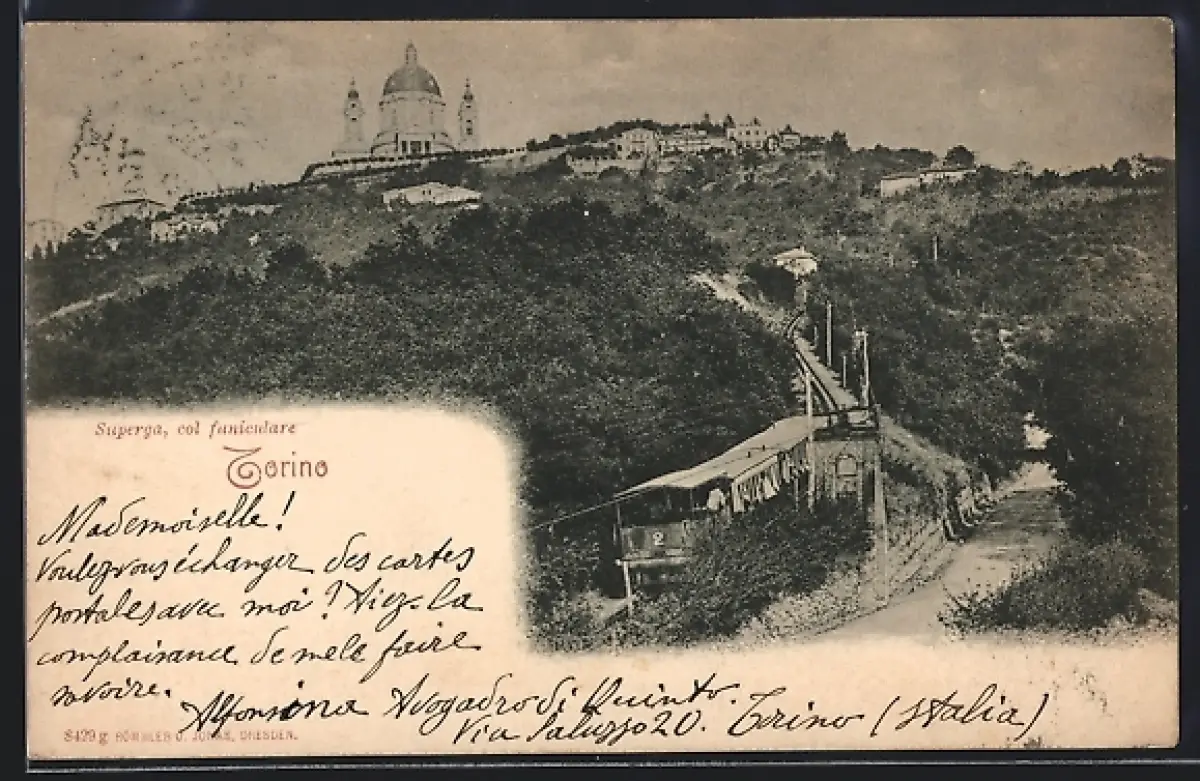 Superga, col funiculare
Torino
Mademoiselle!
Voulezvous échanger des cartes
postales avec moi? Aiez la
complaisance de me le faire
savoire.
Alfonsina Avogadro di Quinto.
Via Saluzzo 20. Torino (Italia)
2
8429 g RÖMMLER & JONAS, DRESDEN.